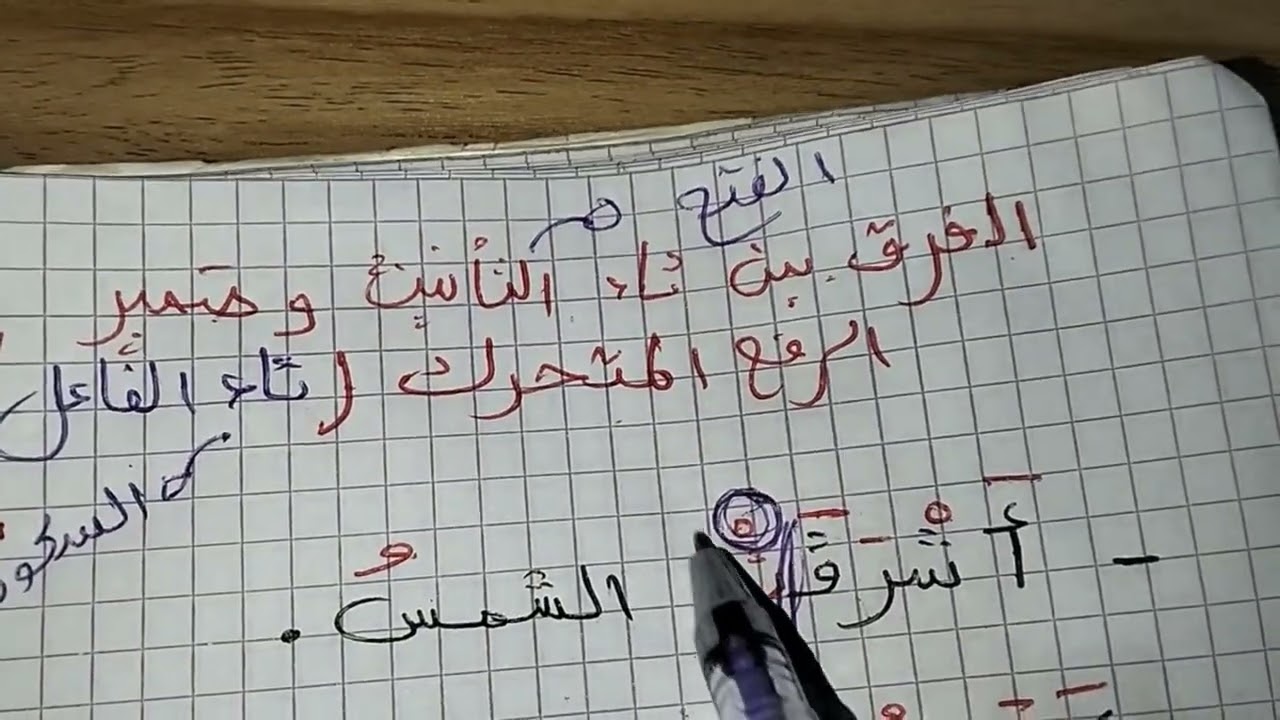 الفتح
الفرق بين تاء التأنيث وضمير
الرفع المتحرك (تاء الفاعل
السكو
- أَشْرَقَتْ الشمسُ.